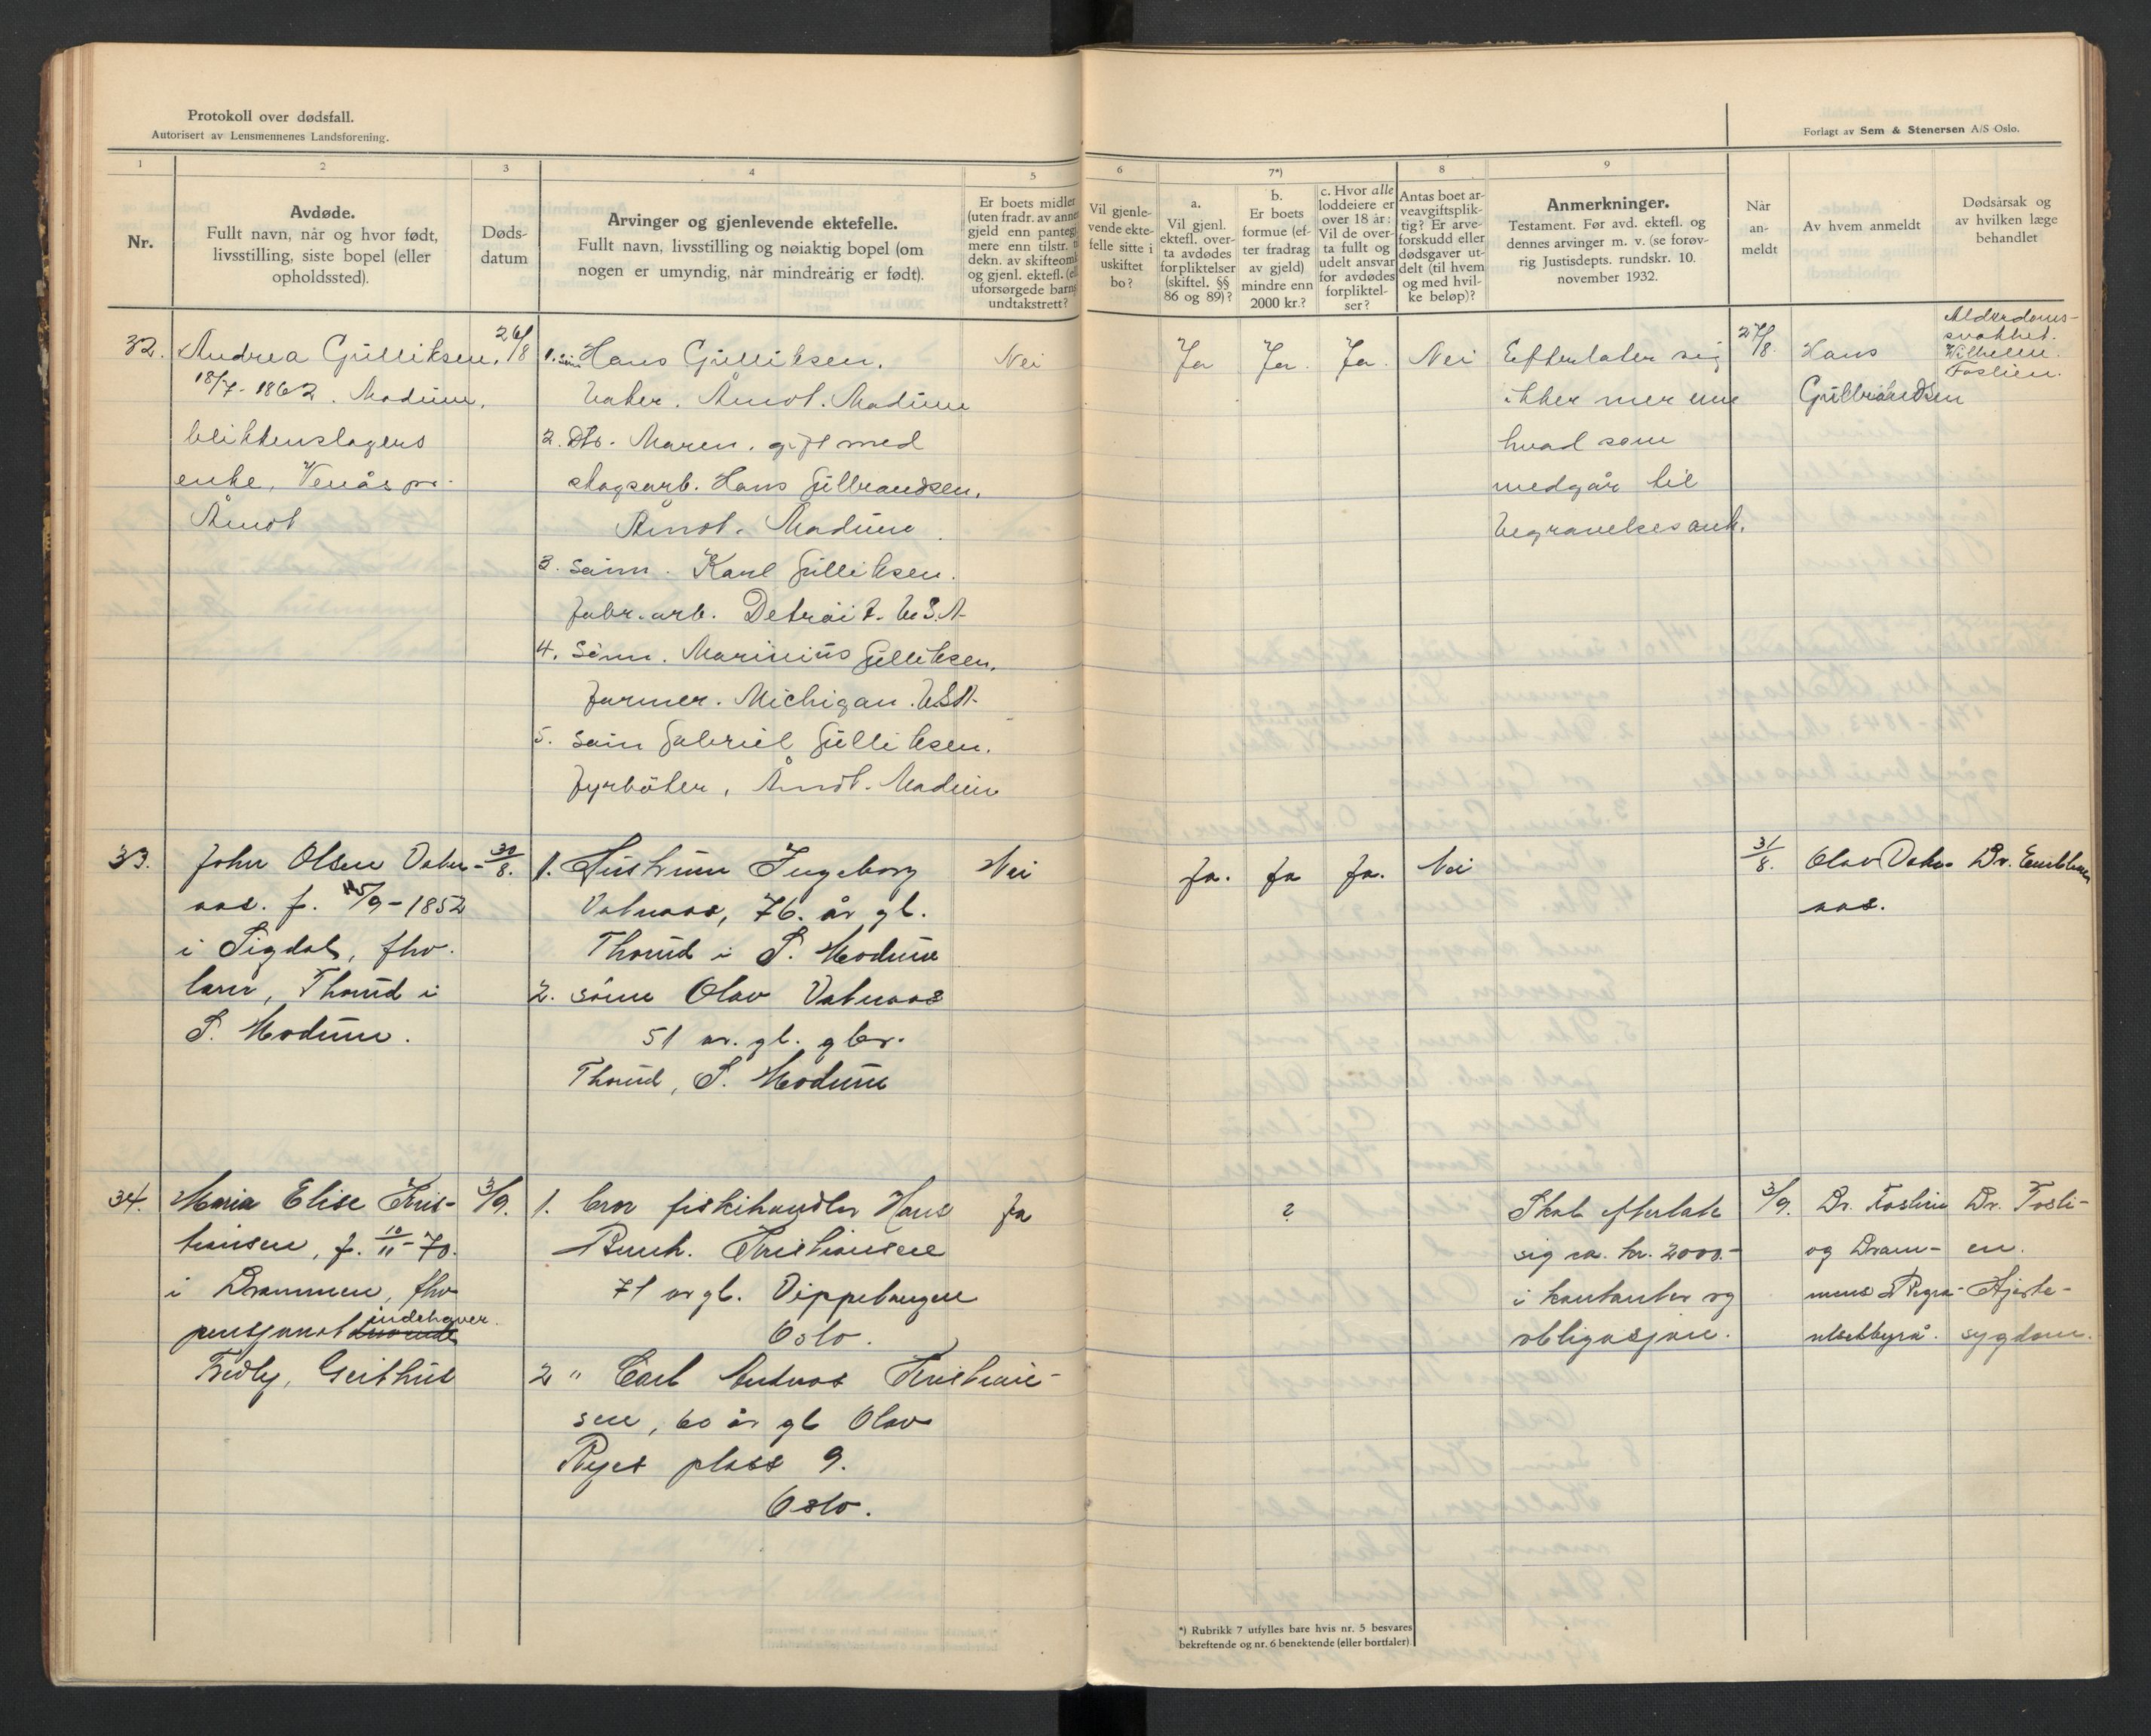 Protokoll over dødsfall.
Autorisert av Lensmennenes Landsforening.
Forlagt av Sem & Stenersen A/S Oslo.
1 2 3 4 5 6 7*) 8 9
Nr.
Avdøde.
Fullt navn, når og hvor født,
livsstilling, siste bopel (eller
opholdssted).
Døds-
datum
Arvinger og gjenlevende ektefelle.
Fullt navn, livsstilling og nøiaktig bopel (om
nogen er umyndig, når mindreårig er født).
Er boets midler
(uten fradr. av annen
gjeld enn pantegj
mere enn tilstr. t
dekn. av skifteomk
og gjenl. ektef. (ell
uforsørgede barns
undtakstrett?
Vil gjenle-
vende ekte-
felle sitte i
uskiftet
bo?
a.
Vil gjenl.
ektefl. over-
ta avdødes
forpliktelser
(skiftel. §§
86 og 89)?
b.
Er boets
formue (ef-
ter fradrag
av gjeld)
mindre enn
2000 kr.?
c. Hvor alle
loddeiere er
over 18 år:
Vil de over-
ta fullt og
udelt ansvar
for avdødes
forpliktel-
ser?
Antas boet ar-
veavgiftsplik-
tig? Er arve-
forskudd eller
dødsgaver ut-
delt (til hvem
og med hvil-
ke beløp)?
Anmerkninger.
Testament. Før avd. ektefl. og
dennes arvinger m. v. (se forøv-
rig Justisdepts. rundskr. 10.
november 1932.
Når
an-
meldt
Av hvem anmeldt
Dødsårsak og
av hvilken læge
behandlet
32.
Andrea Gulliksen,
18/7-1862. Modum,
blikkenslagers
enke, Venås pr.
Åmot
26/8
1. Hans Gulliksen.
baker. Åmot. Modum
2. Dtr. Maren, gift med
skogsarb. Hans Gulbrandsen.
Åmot. Modum.
3. sønn. Karl Gulliksen.
fabr.arb. Detroit. U.S.A.
4. sønn. Marinius Gulliksen.
farmer. Michigan. USA.
5. sønn Gabriel Gulliksen.
fyrbøter, Åmot. Modum
Nei
Ja
Ja.
Ja.
Nei
Efterlater sig
ikker mer enn
hvad som
medgår til
begravelsesomk.
27/8.
Hans
Gulbrandsen
Alderdoms-
svakhet.
Wilhelm
Foslien.
33.
John Olsen Vatn-
aas. f. 15/9-1852
i Sigdal, fhv.
lærer, Thorud i
S. Modum.
30/8.
1. Hustrum Ingeborg
Vatnaas, 76. år gl.
Thorud i S. Modum
2. sønn Olav Vatnaas
51 år. gl. gbr.
Thorud, S. Modum
Nei
Ja.
Ja
Ja.
Nei
31/8.
Olav Vatn-
aas.
34.
Maria Elise Kris-
tiansen, f. 10/11-70.
i Drammen, fhv
pensjonat indehaver.
Fredly, Geithus
3/9.
1. bror fiskehandler Hans
Bernh. Kristiansen
71 år gl. Vippetangen
Oslo.
2 " Carl Andreas Kristian-
sen, 60 år gl Olav
Ryes plass 9.
Oslo.
Ja
?
Skal efterlate
sig ca. kr. 2000.-
i kontanter og
obligasjon.
3/9.
Dr. Foslien
og Dram-
mens Begra-
velsesbyrå.
Dr. Fosli-
en.
Hjerte-
sygdom.
*) Rubrikk 7 utfylles bare hvis nr. 5 besvares
bekreftende og nr. 6 benektende (eller bortfaler).